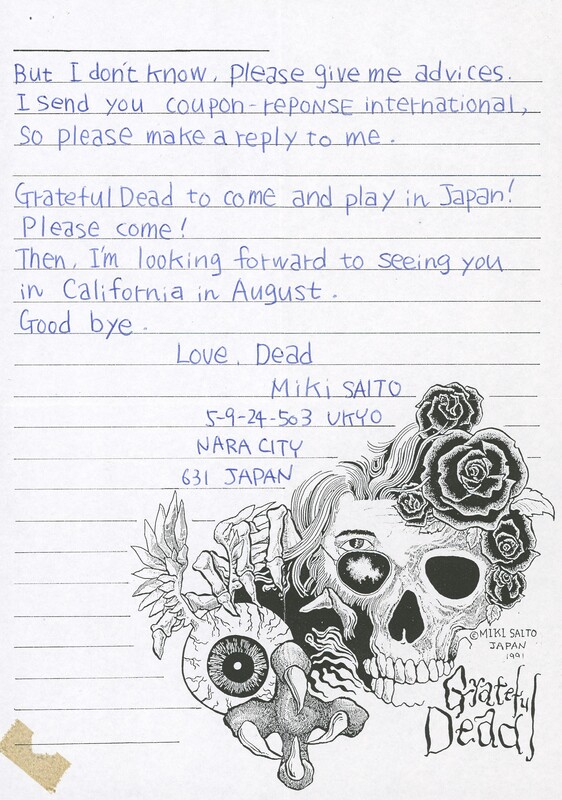 But I don't know. Please give me advices.
I send you COUPON-REPONSE international,
So please make a reply to me.
Grateful Dead to come and play in Japan!
Please come!
Then, I'm looking forward to seeing you
in California in August.
Good bye.
Love, Dead
Miki SAITO
5-9-24-503 UKYO
NARA CITY
631 JAPAN
©MIKI SAITO
JAPAN
1991
Grateful
Dead